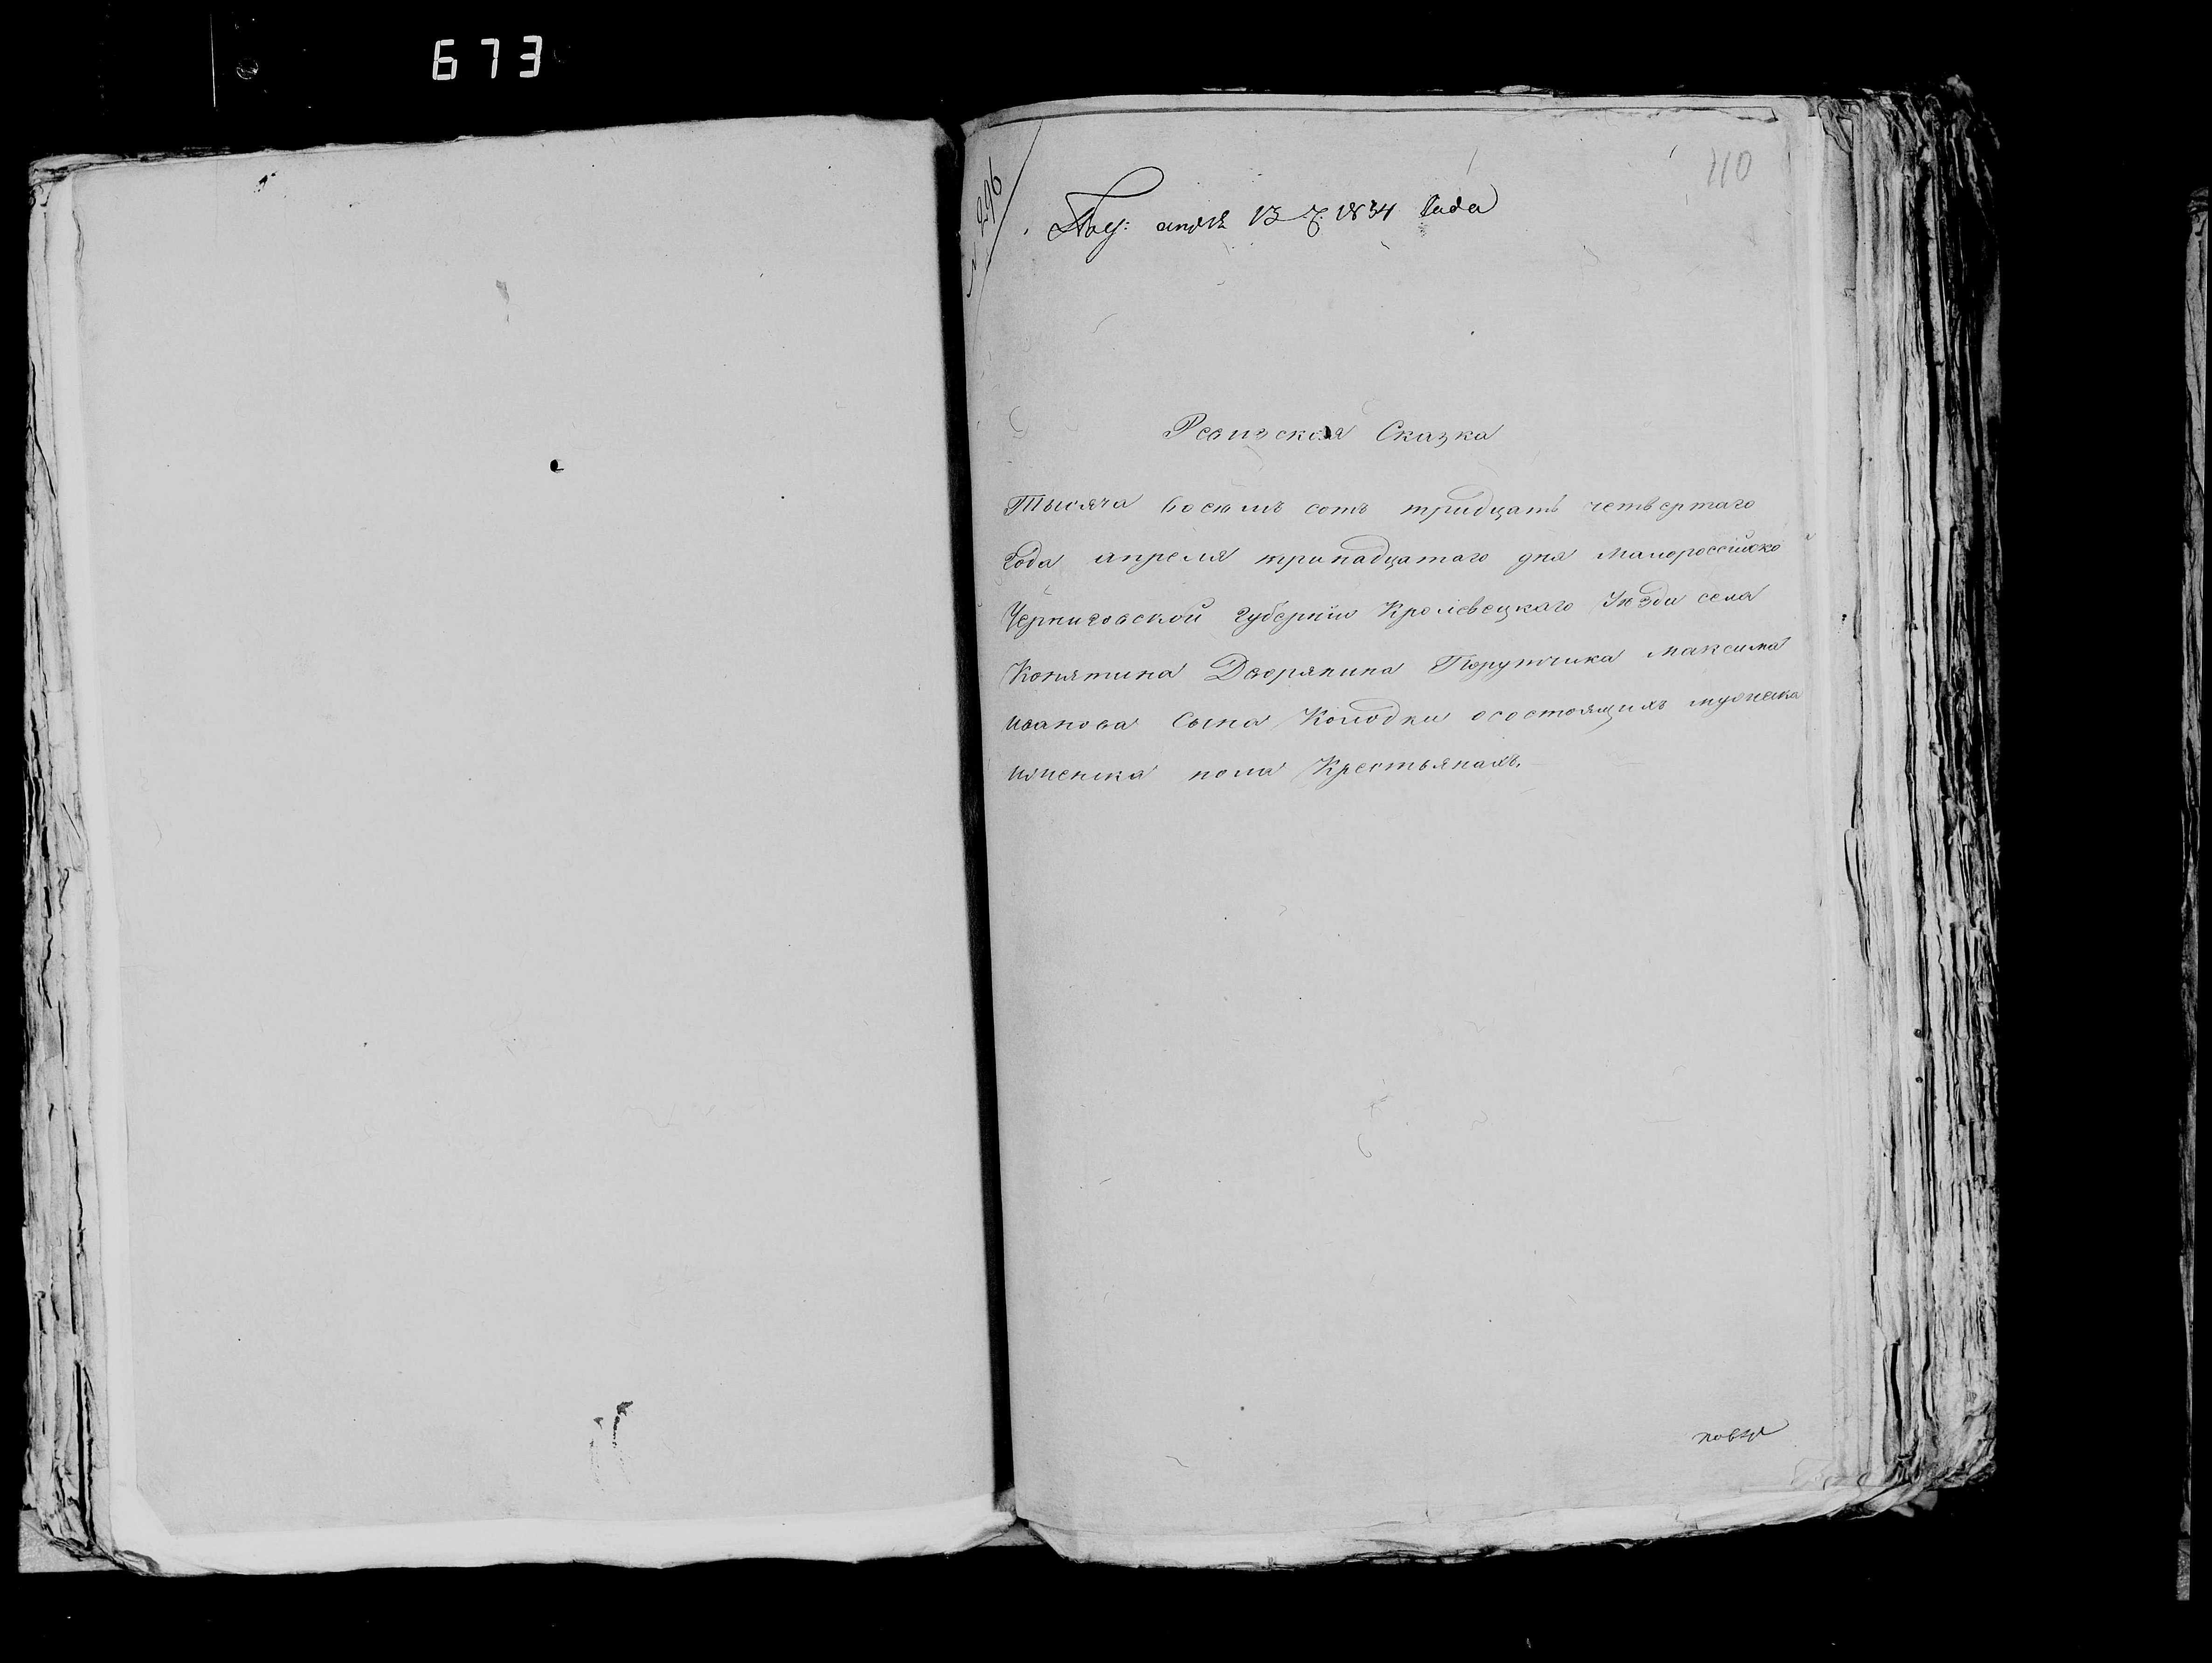 673
110
№ 296
Пол: апрѣл 13 д. 1834 Года
Ревизская Сказка
Тысяча восемъ сотъ тридцать четвертаго
Года апреля тринадцатаго дня Малороссійской
Черниговской Губерніи Кролевецкаго Уезда села
Конятина Дворянина Порутчика Максима
Иванова Сына Колодки осостоящихъ мужеска
иженска пола Крестьянахъ.